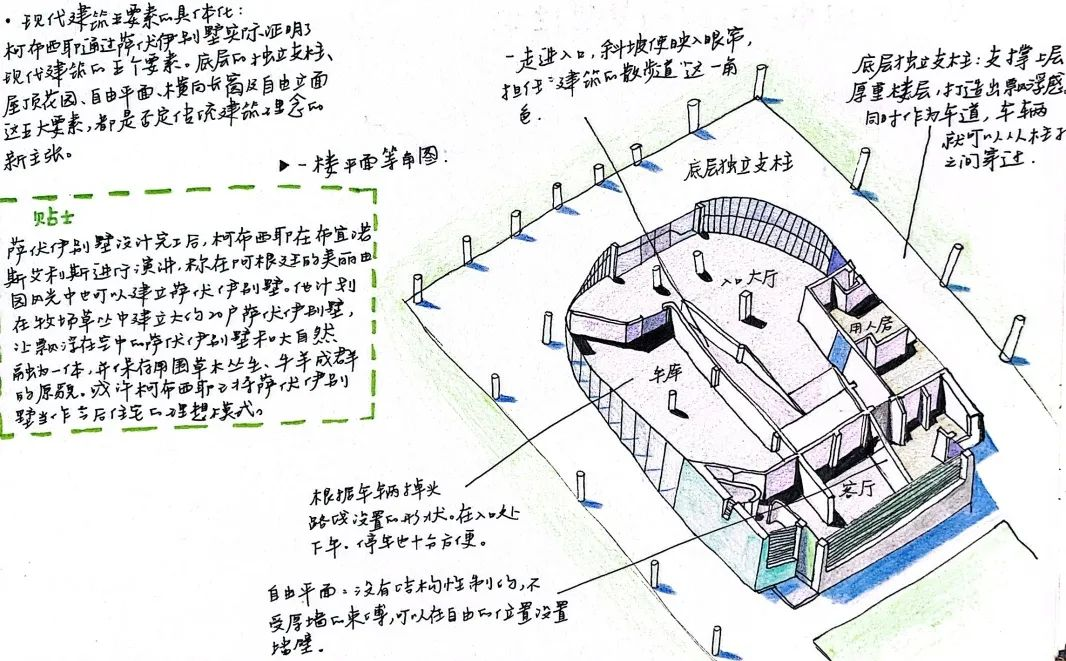 • 现代建筑五要素的具体化：
柯布西耶通过萨伏伊别墅实际证明了
现代建筑的五个要素。底层的独立支柱、
屋顶花园、自由平面、横向长窗及自由立面
这五大要素，都是否定传统建筑理念的
新主张。
▶一楼平面等角图：
贴士
萨伏伊别墅设计完工后，柯布西耶在布宜诺
斯艾利斯进行演讲，称在阿根廷的美丽田
园风光中也可以建立萨伏伊别墅。他计划
在牧场草丛中建立大约20户萨伏伊别墅，
让飘浮在空中的萨伏伊别墅和大自然
融为一体，并保存周围草木丛生、牛羊成群
的原貌。或许柯布西耶已将萨伏伊别
墅当作今后住宅的理想模式。
一走进入口，斜坡便映入眼帘，
担任“建筑的散步道”这一角
色．
底层独立支柱：支撑上层
厚重楼层，打造出飘浮感
同时作为车道，车辆
就可以从柱子
之间穿过．
底层独立支柱
入口大厅
用人房
车库
客厅
根据车辆掉头
路线设置的形状。在入口处
下车、停车也十分方便。
自由平面：没有结构性制约，不
受厚墙的束缚，可以在自由的位置设置
墙壁．